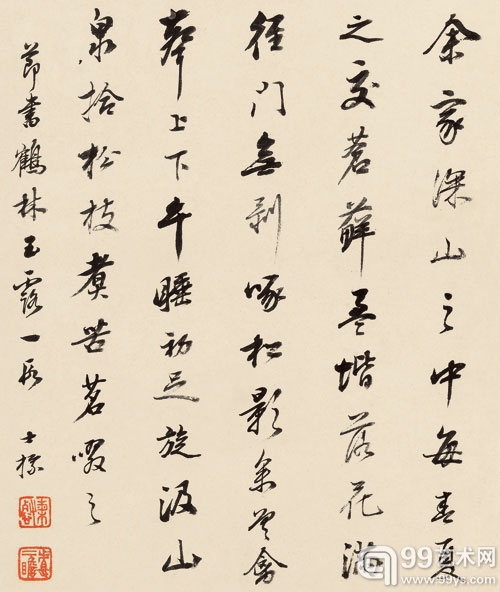 余家深山之中每春夏
之交蒼蘚盈堦落花滿
徑門無剥啄松影參差禽
聲上下午睡初足旋汲山
泉拾松枝煮苦茗啜之
節書鶴林玉露一段 士標
99艺术网
www.99ys.com